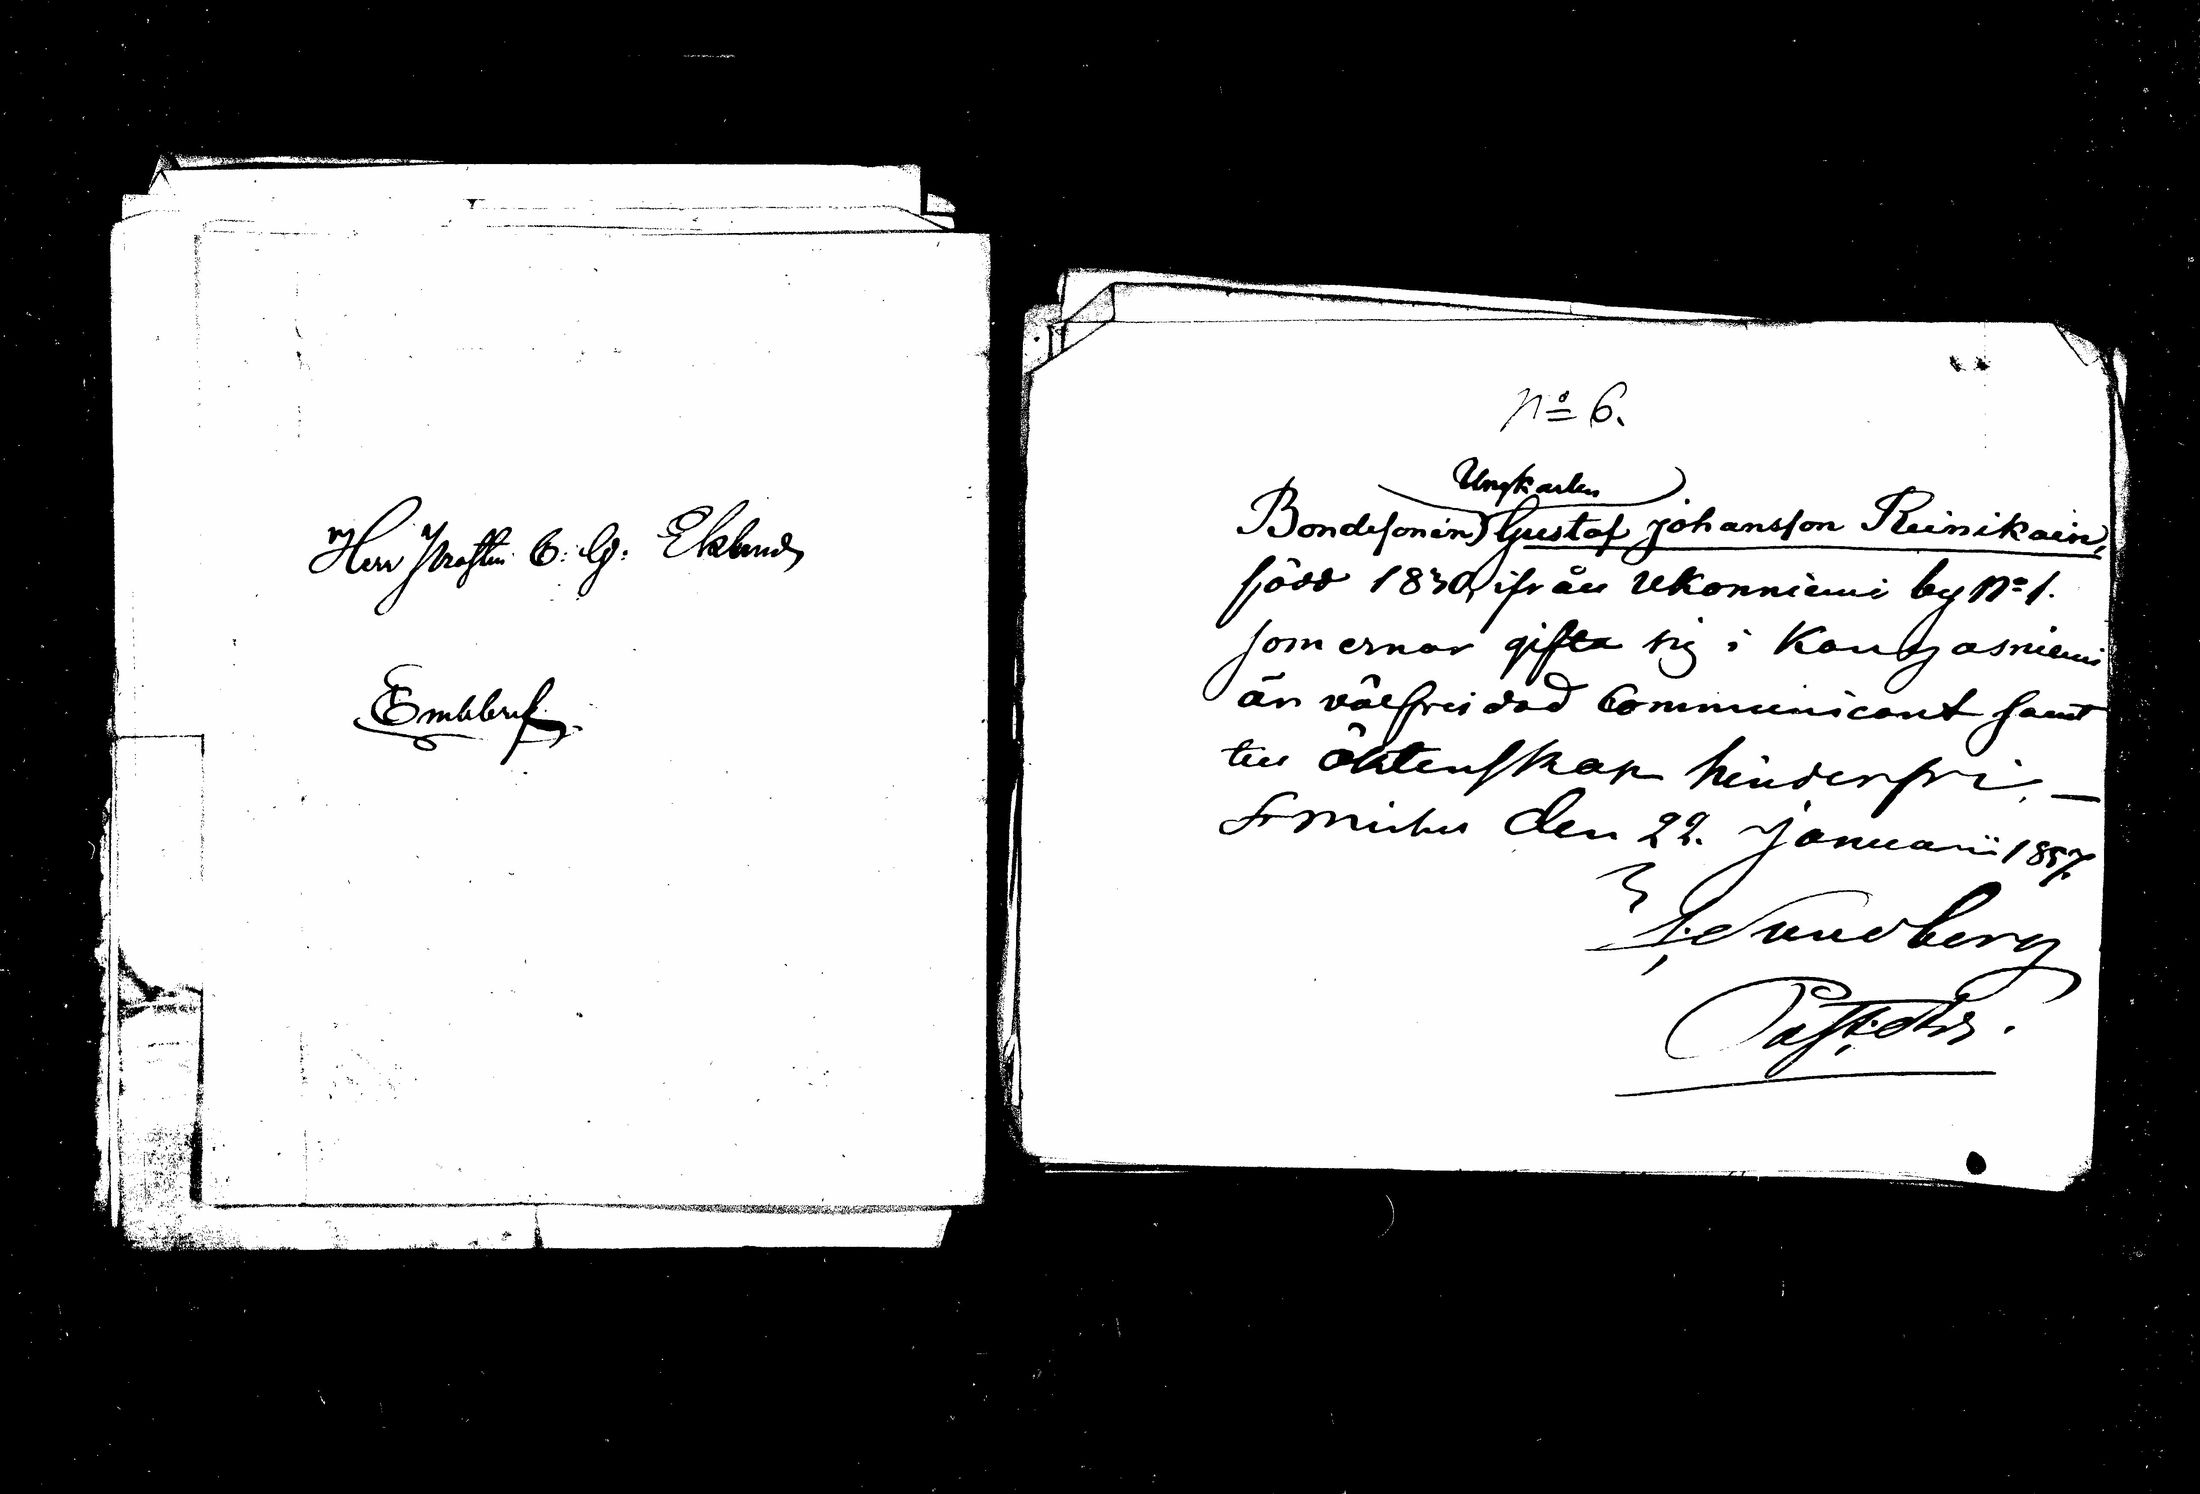 Herr Prosten C. G. Eklund
No 6.
Ungkarlen
Bondesonen Gustaf Johansson Reinikain,
född 1830, ifrån Ukonniemi by No 1.
som ernar gifta sig i Kangasniemi
är välfreidad Communicant samt
till äktenskap hinderfri. —
St Michel den 22. Januarii 1857.
Sundberg